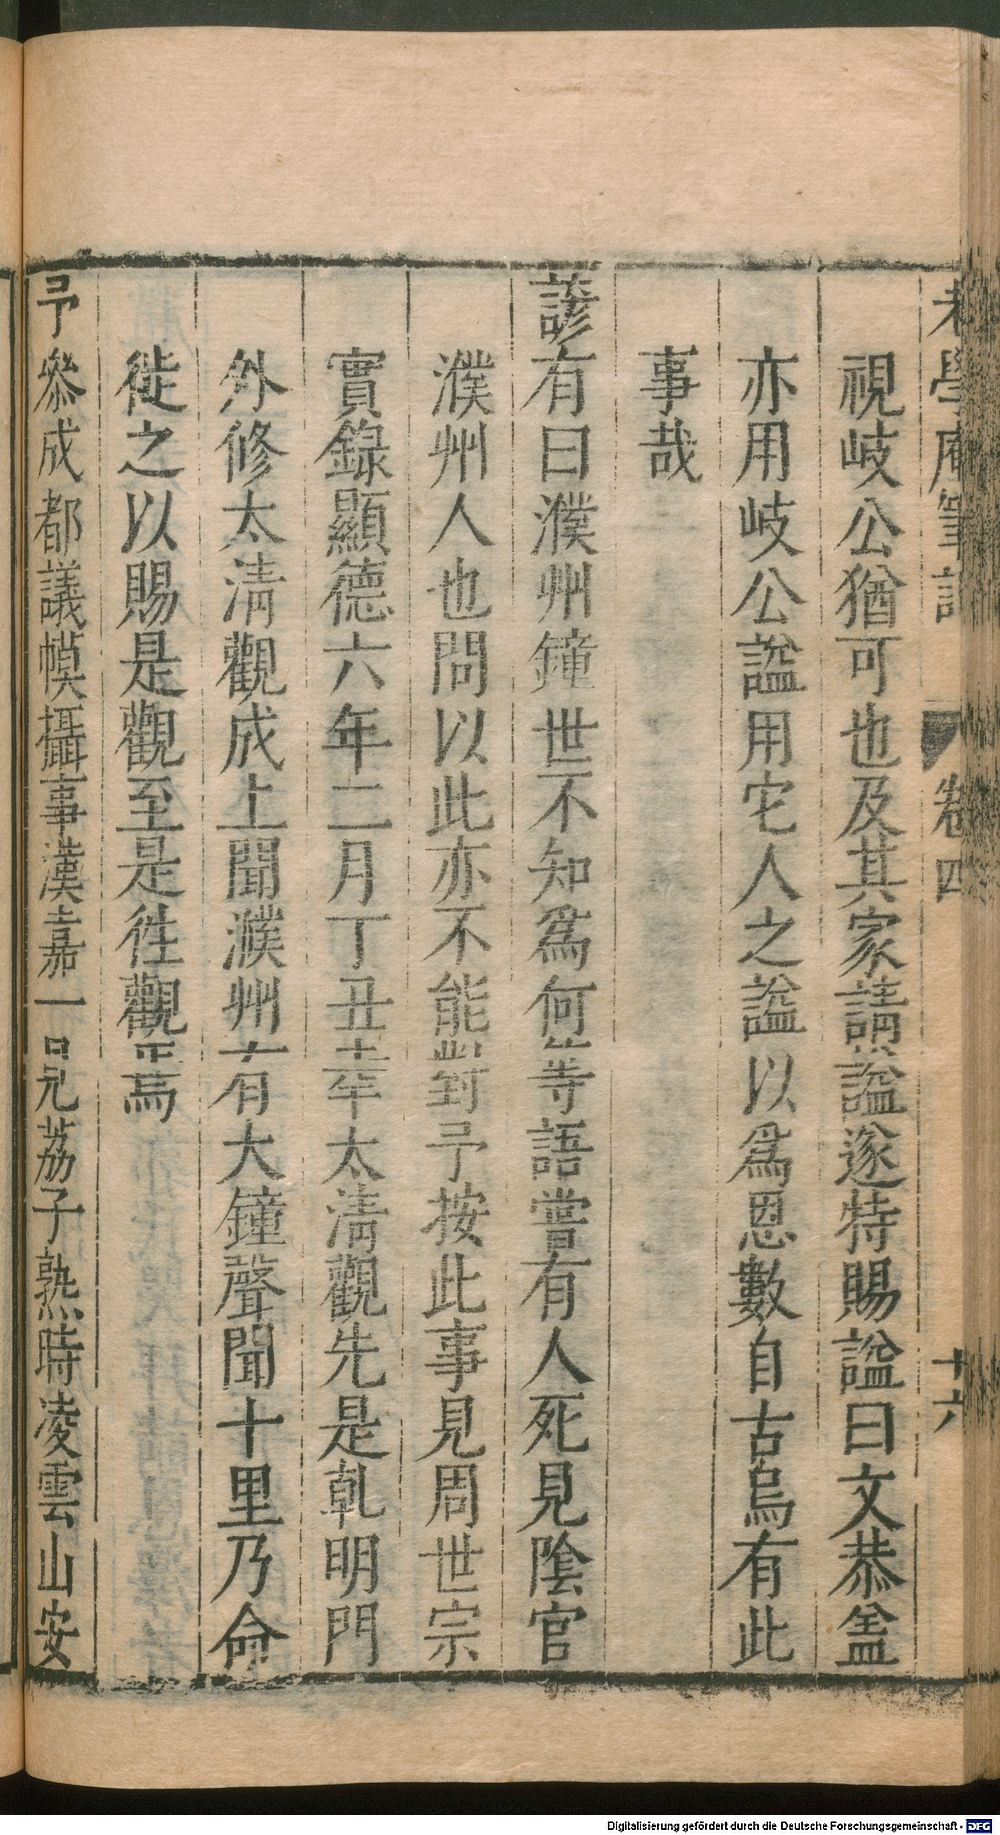 老學庵筆記 卷四 十六
視岐公猶可也及其家請諡遂特賜諡曰文恭盖
亦用岐公諡用宅人之諡以爲恩數自古烏有此
事哉
諺有曰濮州鐘世不知爲何等語嘗有人死見陰官
濮州人也問以此亦不能對予按此事見周世宗
實錄顯德六年二月丁丑幸太清觀先是乹明門
外修太清觀成上聞濮州有大鐘聲聞十里乃命
徙之以賜是觀至是徃觀焉
予叅成都議幙攝事漢嘉一見荔子熟時凌雲山安
Digitalisierung gefördert durch die Deutsche Forschungsgemeinschaft - DFG